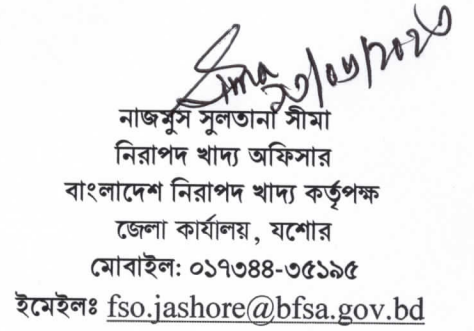 নাজমুস সুলতানা সীমা
নিরাপদ খাদ্য অফিসার
বাংলাদেশ নিরাপদ খাদ্য কর্তৃপক্ষ
জেলা কার্যালয়, যশোর
মোবাইল: ০১৭৩৪৪-৩৫১৯৫
ইমেইলঃ fso.jashore@bfsa.gov.bd